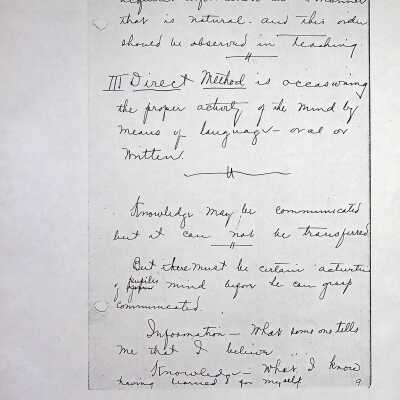 that is natural. and this order
should be observed in Teaching
III Direct Method is occasioning
the proper activity of the mind by
means of language - oral or
written.
Knowledge may be communicated
but it can not be transferred
But there must be certain activities
of pupiles mind before he can grasp
communicated.
Information - What some one tells
me that I believe
Knowledge - What I know
having learned for myself
9